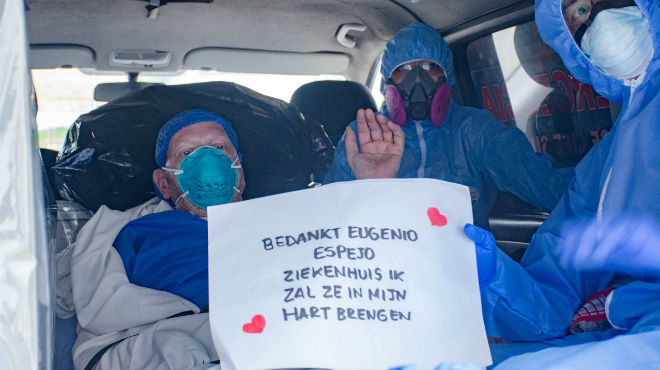 BEDANKT EUGENIO
ESPEJO
ZIEKENHUIS IK
ZAL ZE IN MIJN
HART BRENGEN